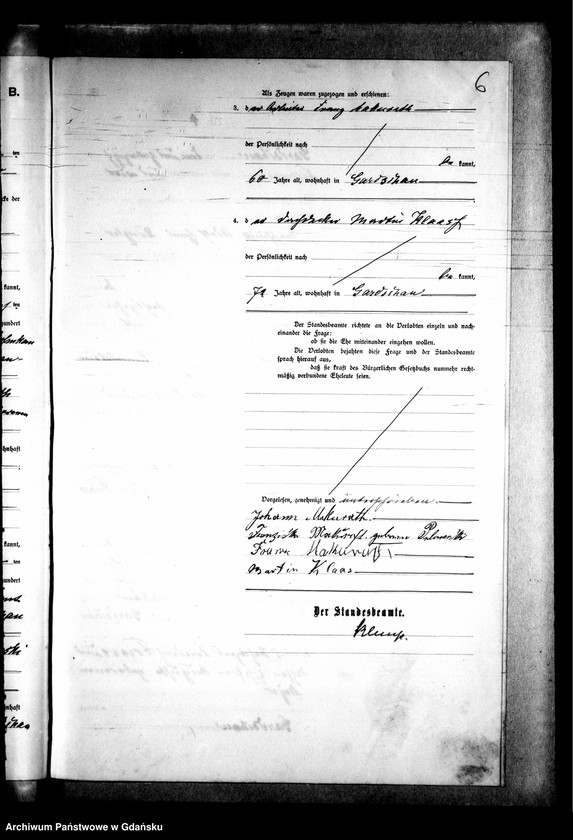 B.
6
Als Zeugen waren zugezogen und erschienen:
3. der Arbeiter Franz Makurath
der Persönlichkeit nach
be kannt,
60 Jahre alt, wohnhaft in Gardschau
4. der Dachdecker Martin Klaas
der Persönlichkeit nach
be kannt,
Jahre alt, wohnhaft in Gardschau
Der Standesbeamte richtete an die Verlobten einzeln und nach-
einander die Frage:
ob sie die Ehe miteinander eingehen wollen.
Die Verlobten bejahten diese Frage und der Standesbeamte
sprach hierauf aus,
daß sie kraft des Bürgerlichen Gesetzbuchs nunmehr recht-
mäßig verbundene Eheleute seien.
Vorgelesen, genehmigt und unterschrieben
Johann Makurath
Franziska Makurath geborene
Makurath
Martin Klaas
Der Standesbeamte.
Archiwum Państwowe w Gdańsku